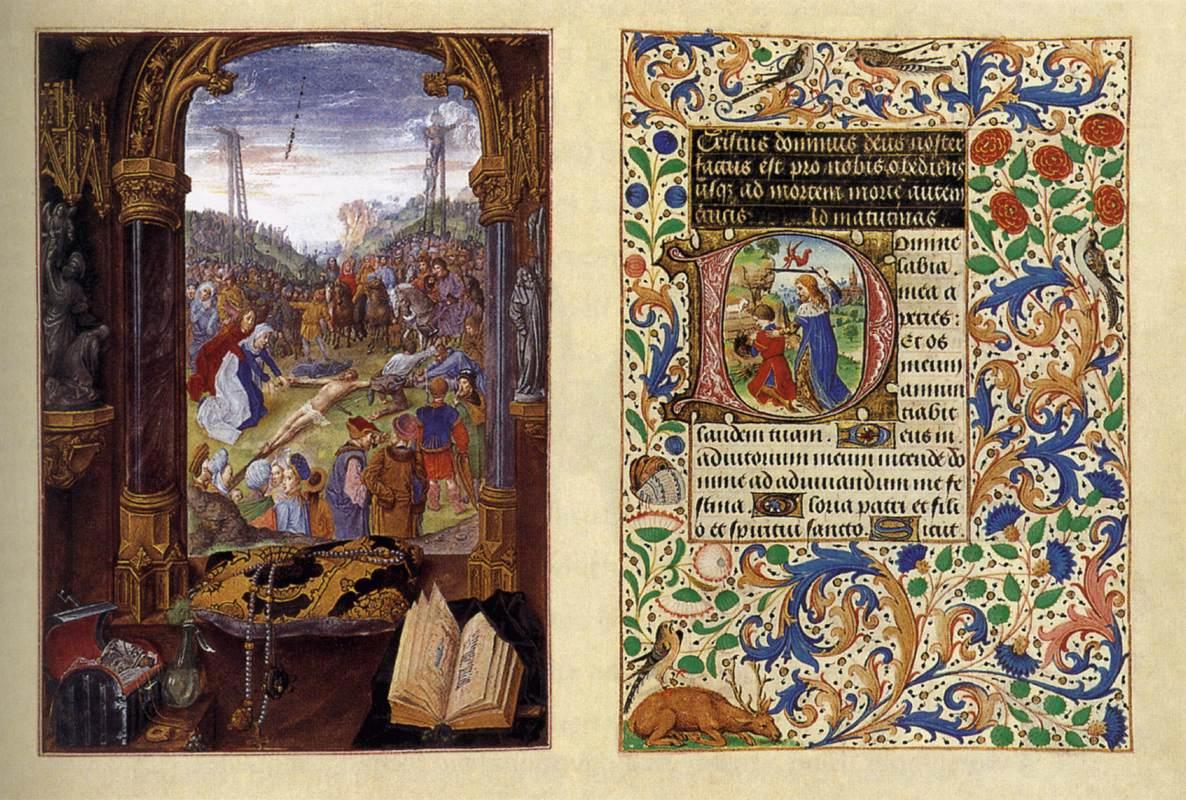 Cristus dominus deus noster
factus est pro nobis obediens
usqꝫ ad mortem morte autem
crucis Ad matutinas
Domine
labia.
mea a
peries:
Et os
meum
annun
tiabit
laudem tuam. Deus in
adiutorium meum intende do
mine ad adiuuandum me fe
stina Gloria patri et fili
o et spiritui sancto. Sicut